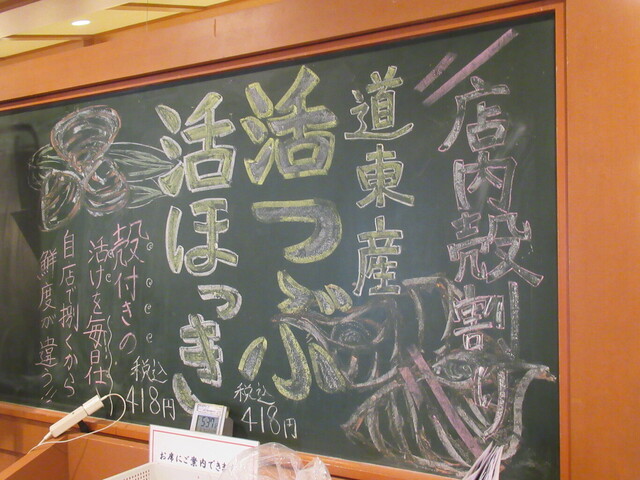 店内殻割り
道東産
活つぶ
税込
418円
活ほっき
税込
418円
殻付きの
活けを毎日仕
自店で捌くから
鮮度が違う!!
537
お席にご案内できま